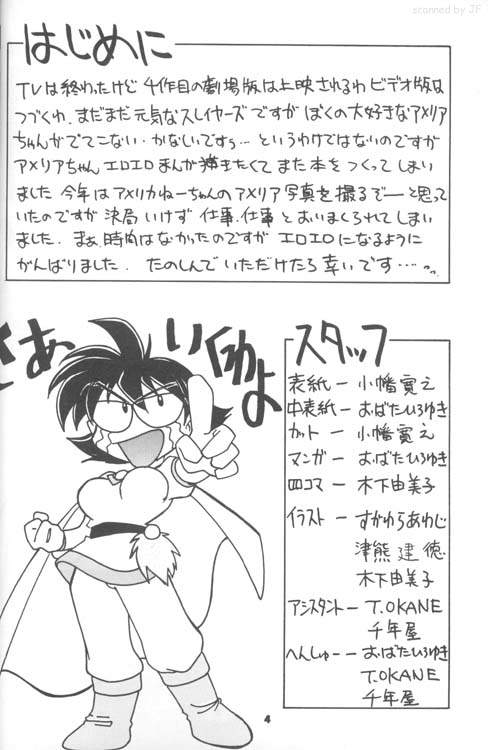 scanned by JF
はじめに
TVは終わったけど 千作目の劇場版は上映されるわ ビデオ版は
つづくわ. まだまだ 元気なスレイヤーズですが ぼくの大好きなアメリア
ちゃんがでてこない. かなしいですぅ… というわけではないのですが
アメリアちゃん エロエロまんが 描きたくて また本をつくってしまい
ました 今年はアメリカねーちゃんのアメリア写真を撮るぞーと思って
いたのですが 決局 いけず 仕事.仕事とおいまくられてしまい
ました. まぁ、時間はなかったのですが エロエロになるように
がんばりました. たのしんでいただけたら 幸いです….
さぁ いくわよ
スタッフ
表紙 ー 小幡寛之
中表紙 ー おばたひろゆき
カット ー 小幡寛之
マンガー おばたひろゆき
四コマ ー 木下由美子
イラスト ー すがわらあわじ
津熊建徳
木下由美子
アシスタントー T.OKANE
千年屋
へんしゅーー おばたひろゆき
T.OKANE
千年屋
4